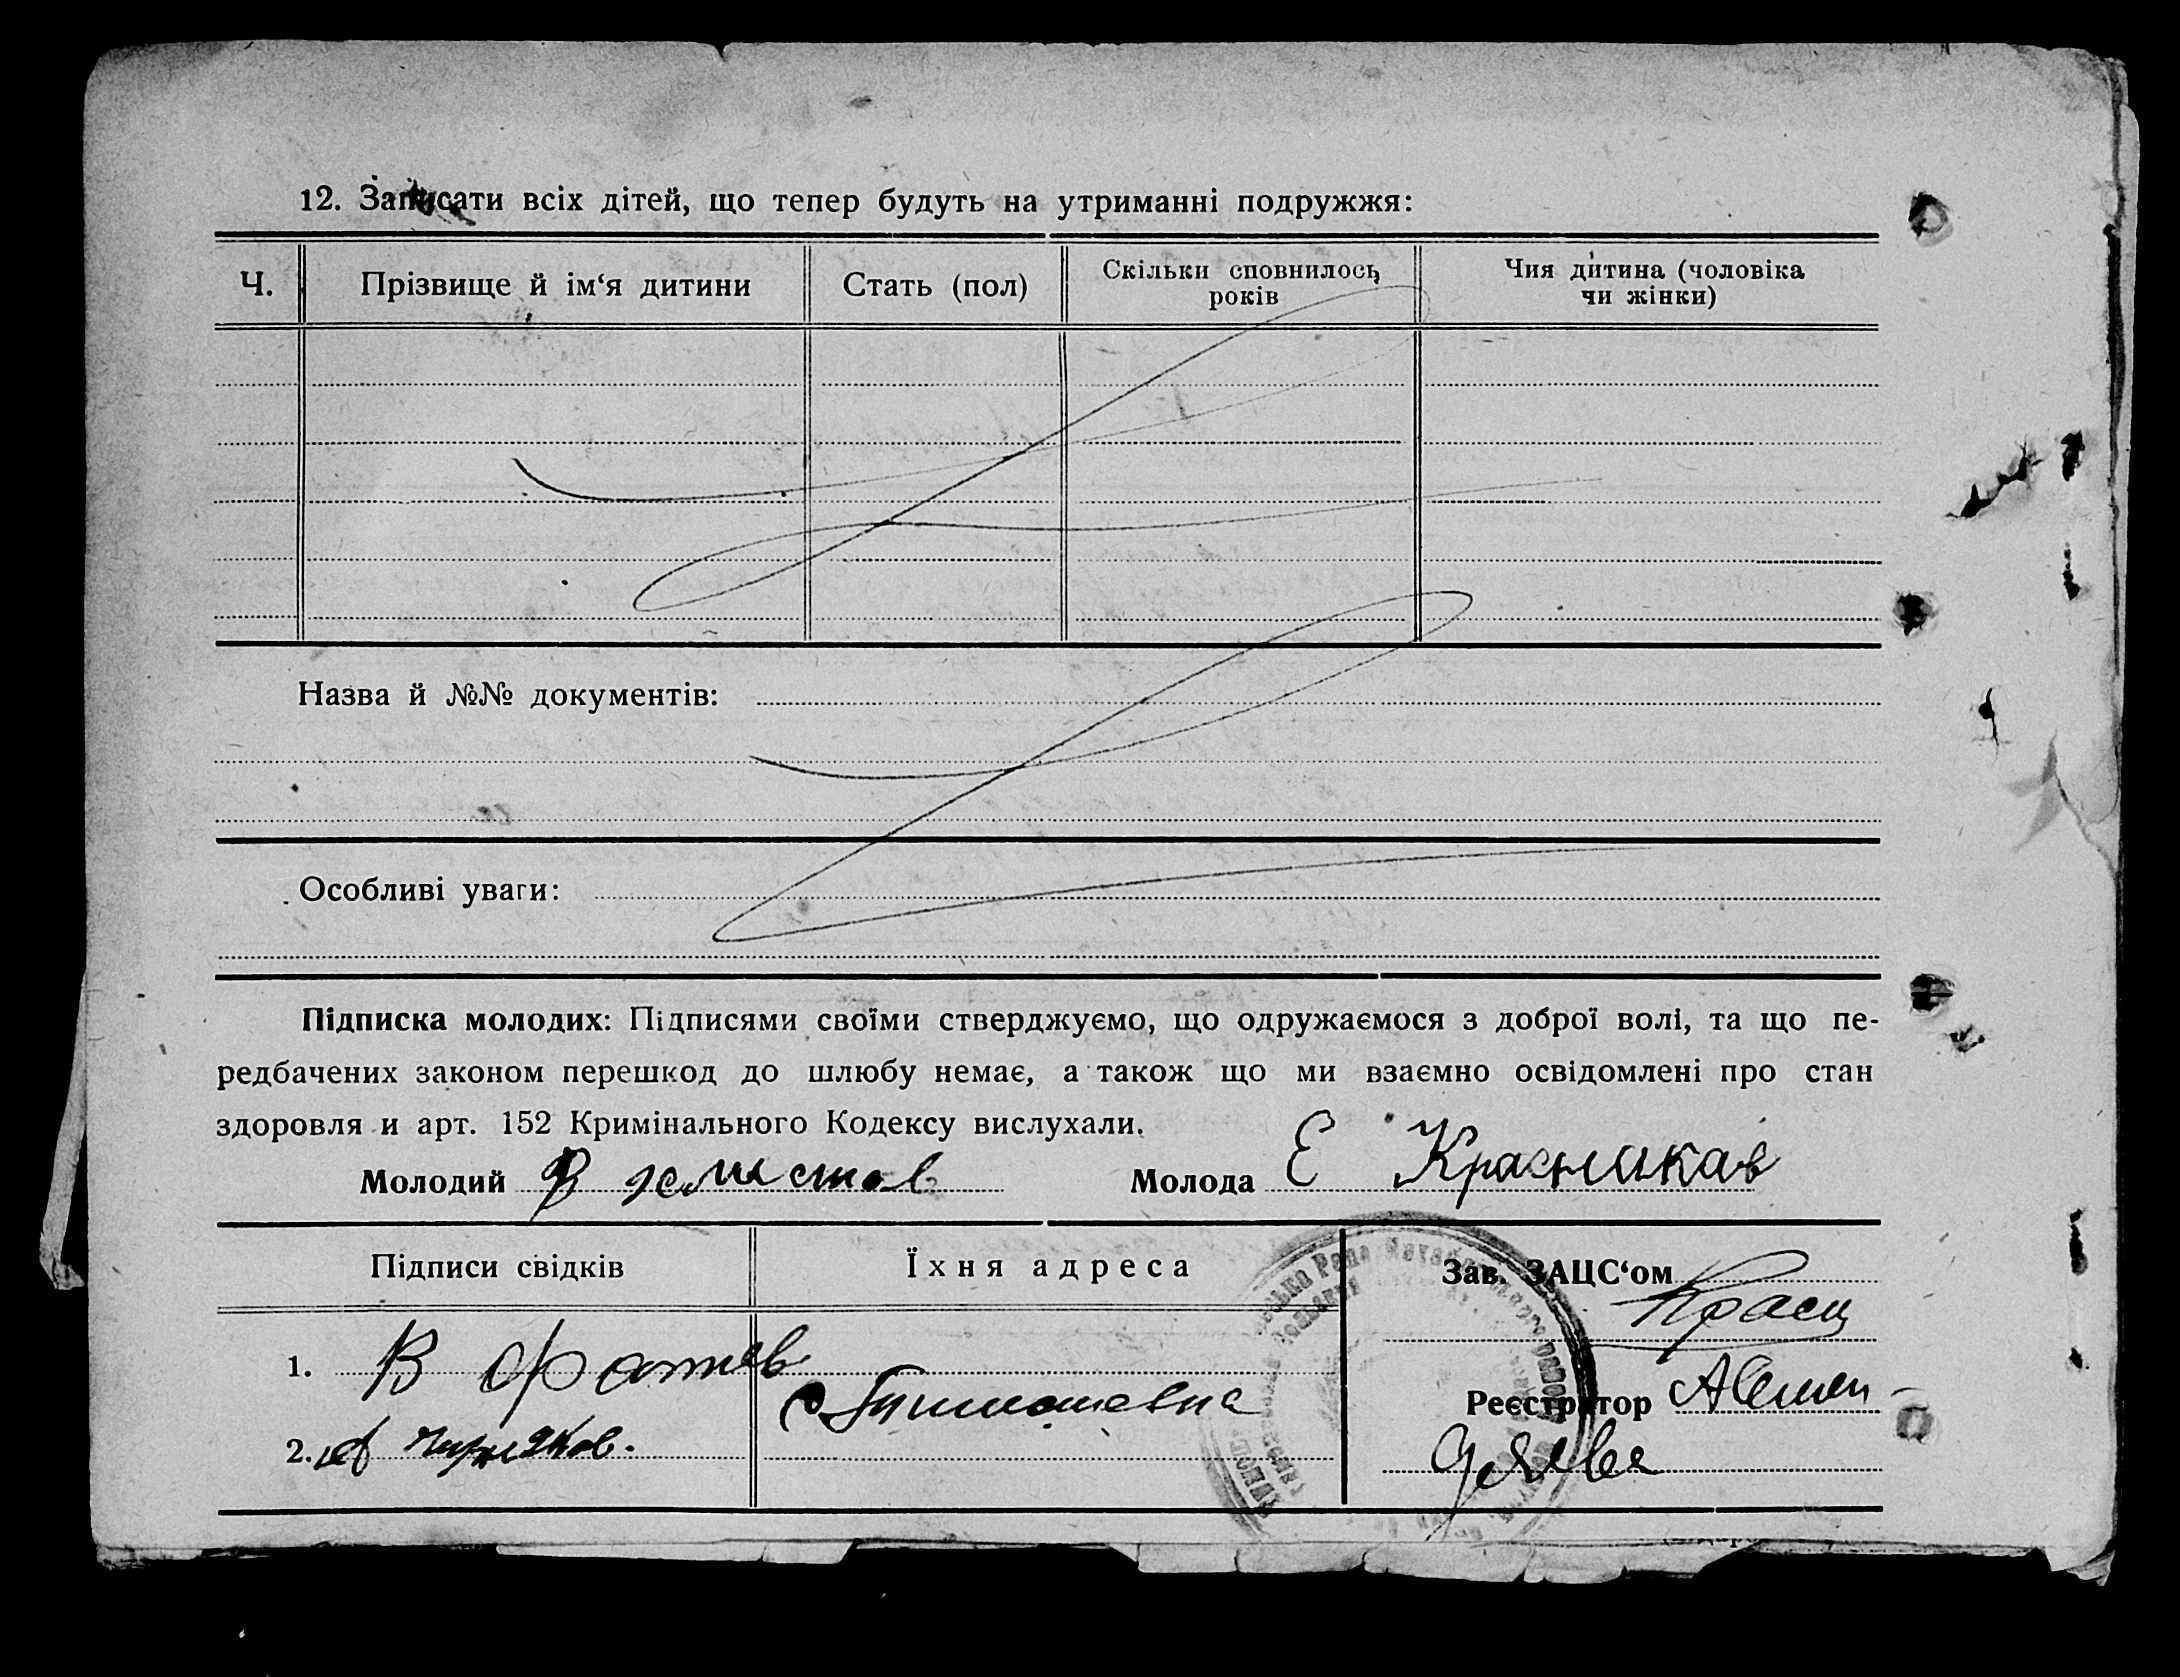 12. Записати всіх дітей, що тепер будуть на утриманні подружжя:
Ч.
Прізвище й ім‘я дитини
Стать (пол)
Скільки сповнилось
років
Чия дитина (чоловіка
чи жінки)
Назва й №№ документів:
Особливі уваги:
Підписка молодих: Підписями своїми стверджуємо, що одружаємося з доброї волі, та що пе-
редбачених законом перешкод до шлюбу немає, а також що ми взаємно освідомлені про стан
здоровля и арт. 152 Кримінального Кодексу вислухали.
Молодий
Молода Е Красникав
Підписи свідків
Їхня адреса
Зав. ЗАЦС‘ом
1. В Фатев
Реєстратор
2.